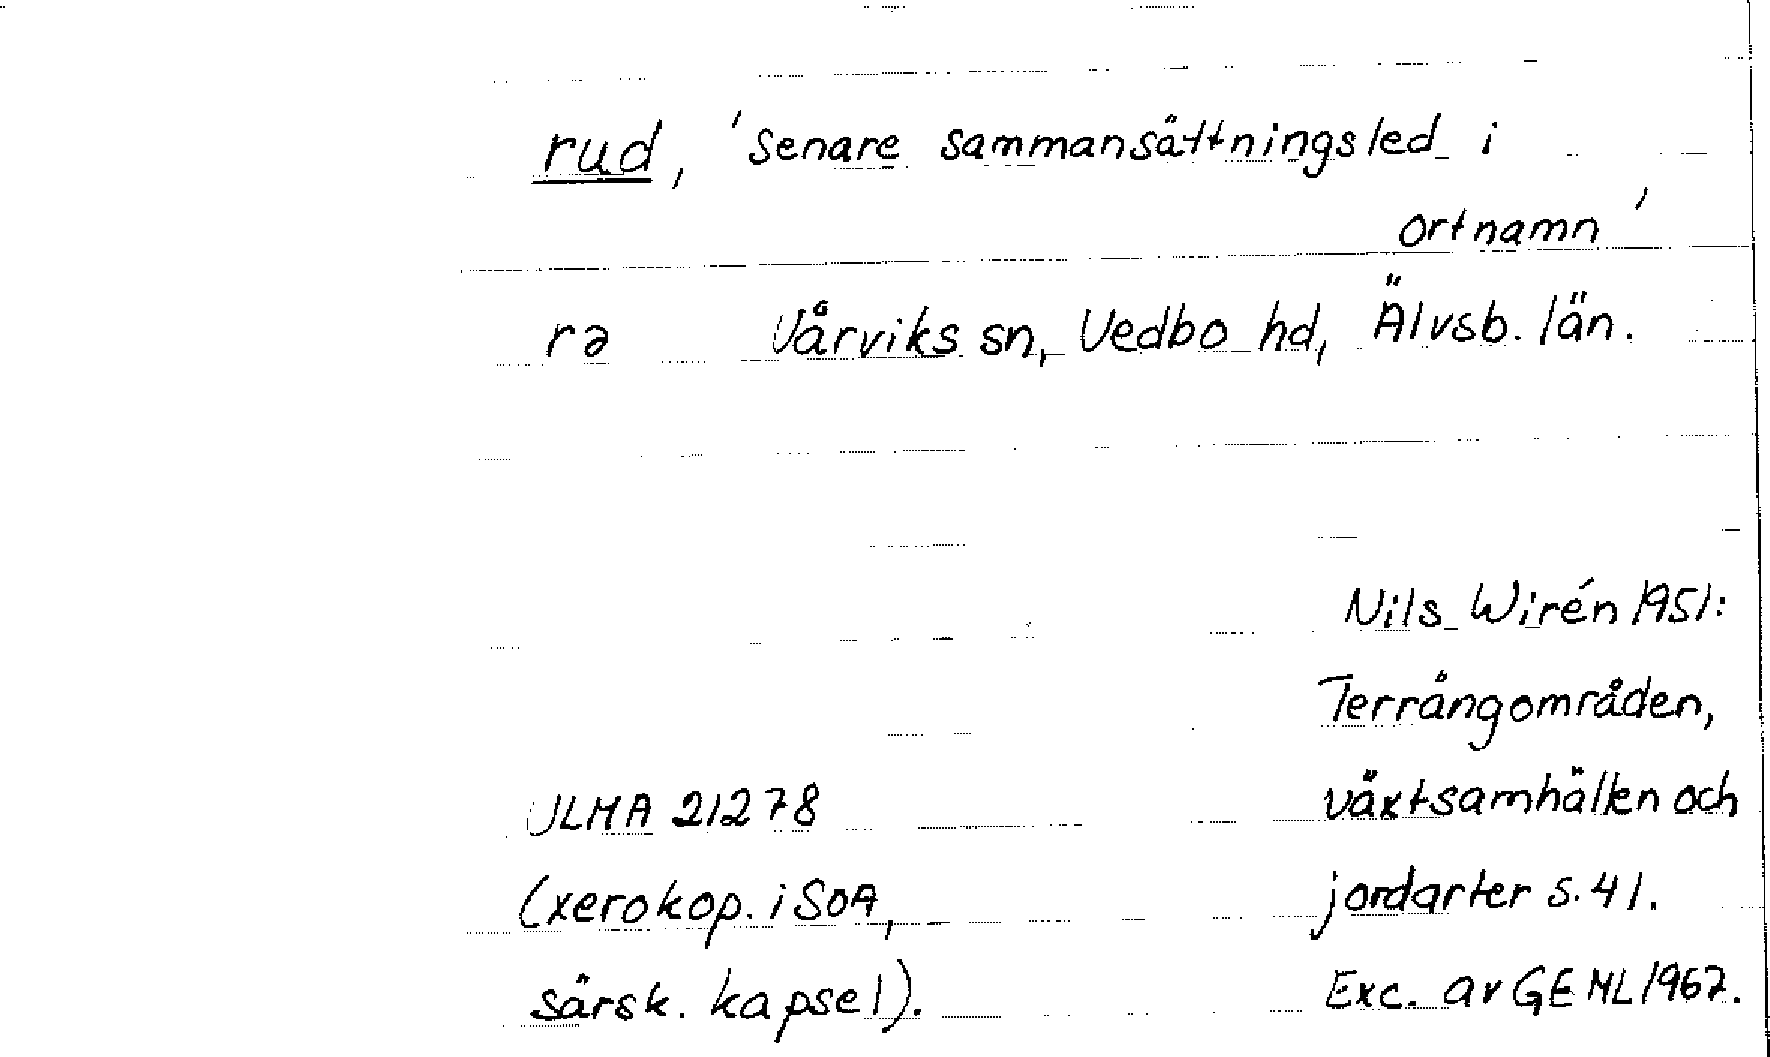 rud, 'senare sammansättningsled i
ortnamn'
rə Vårviks sn, Vedbo hd, Älvsb. län.
Nils Wirén 1951:
Terrängområden,
växtsamhällen och
jordarter s. 41.
Exc. av GEML 1967.
ULMA 21278
(xerokop. i SOA,
särsk. kapsel).